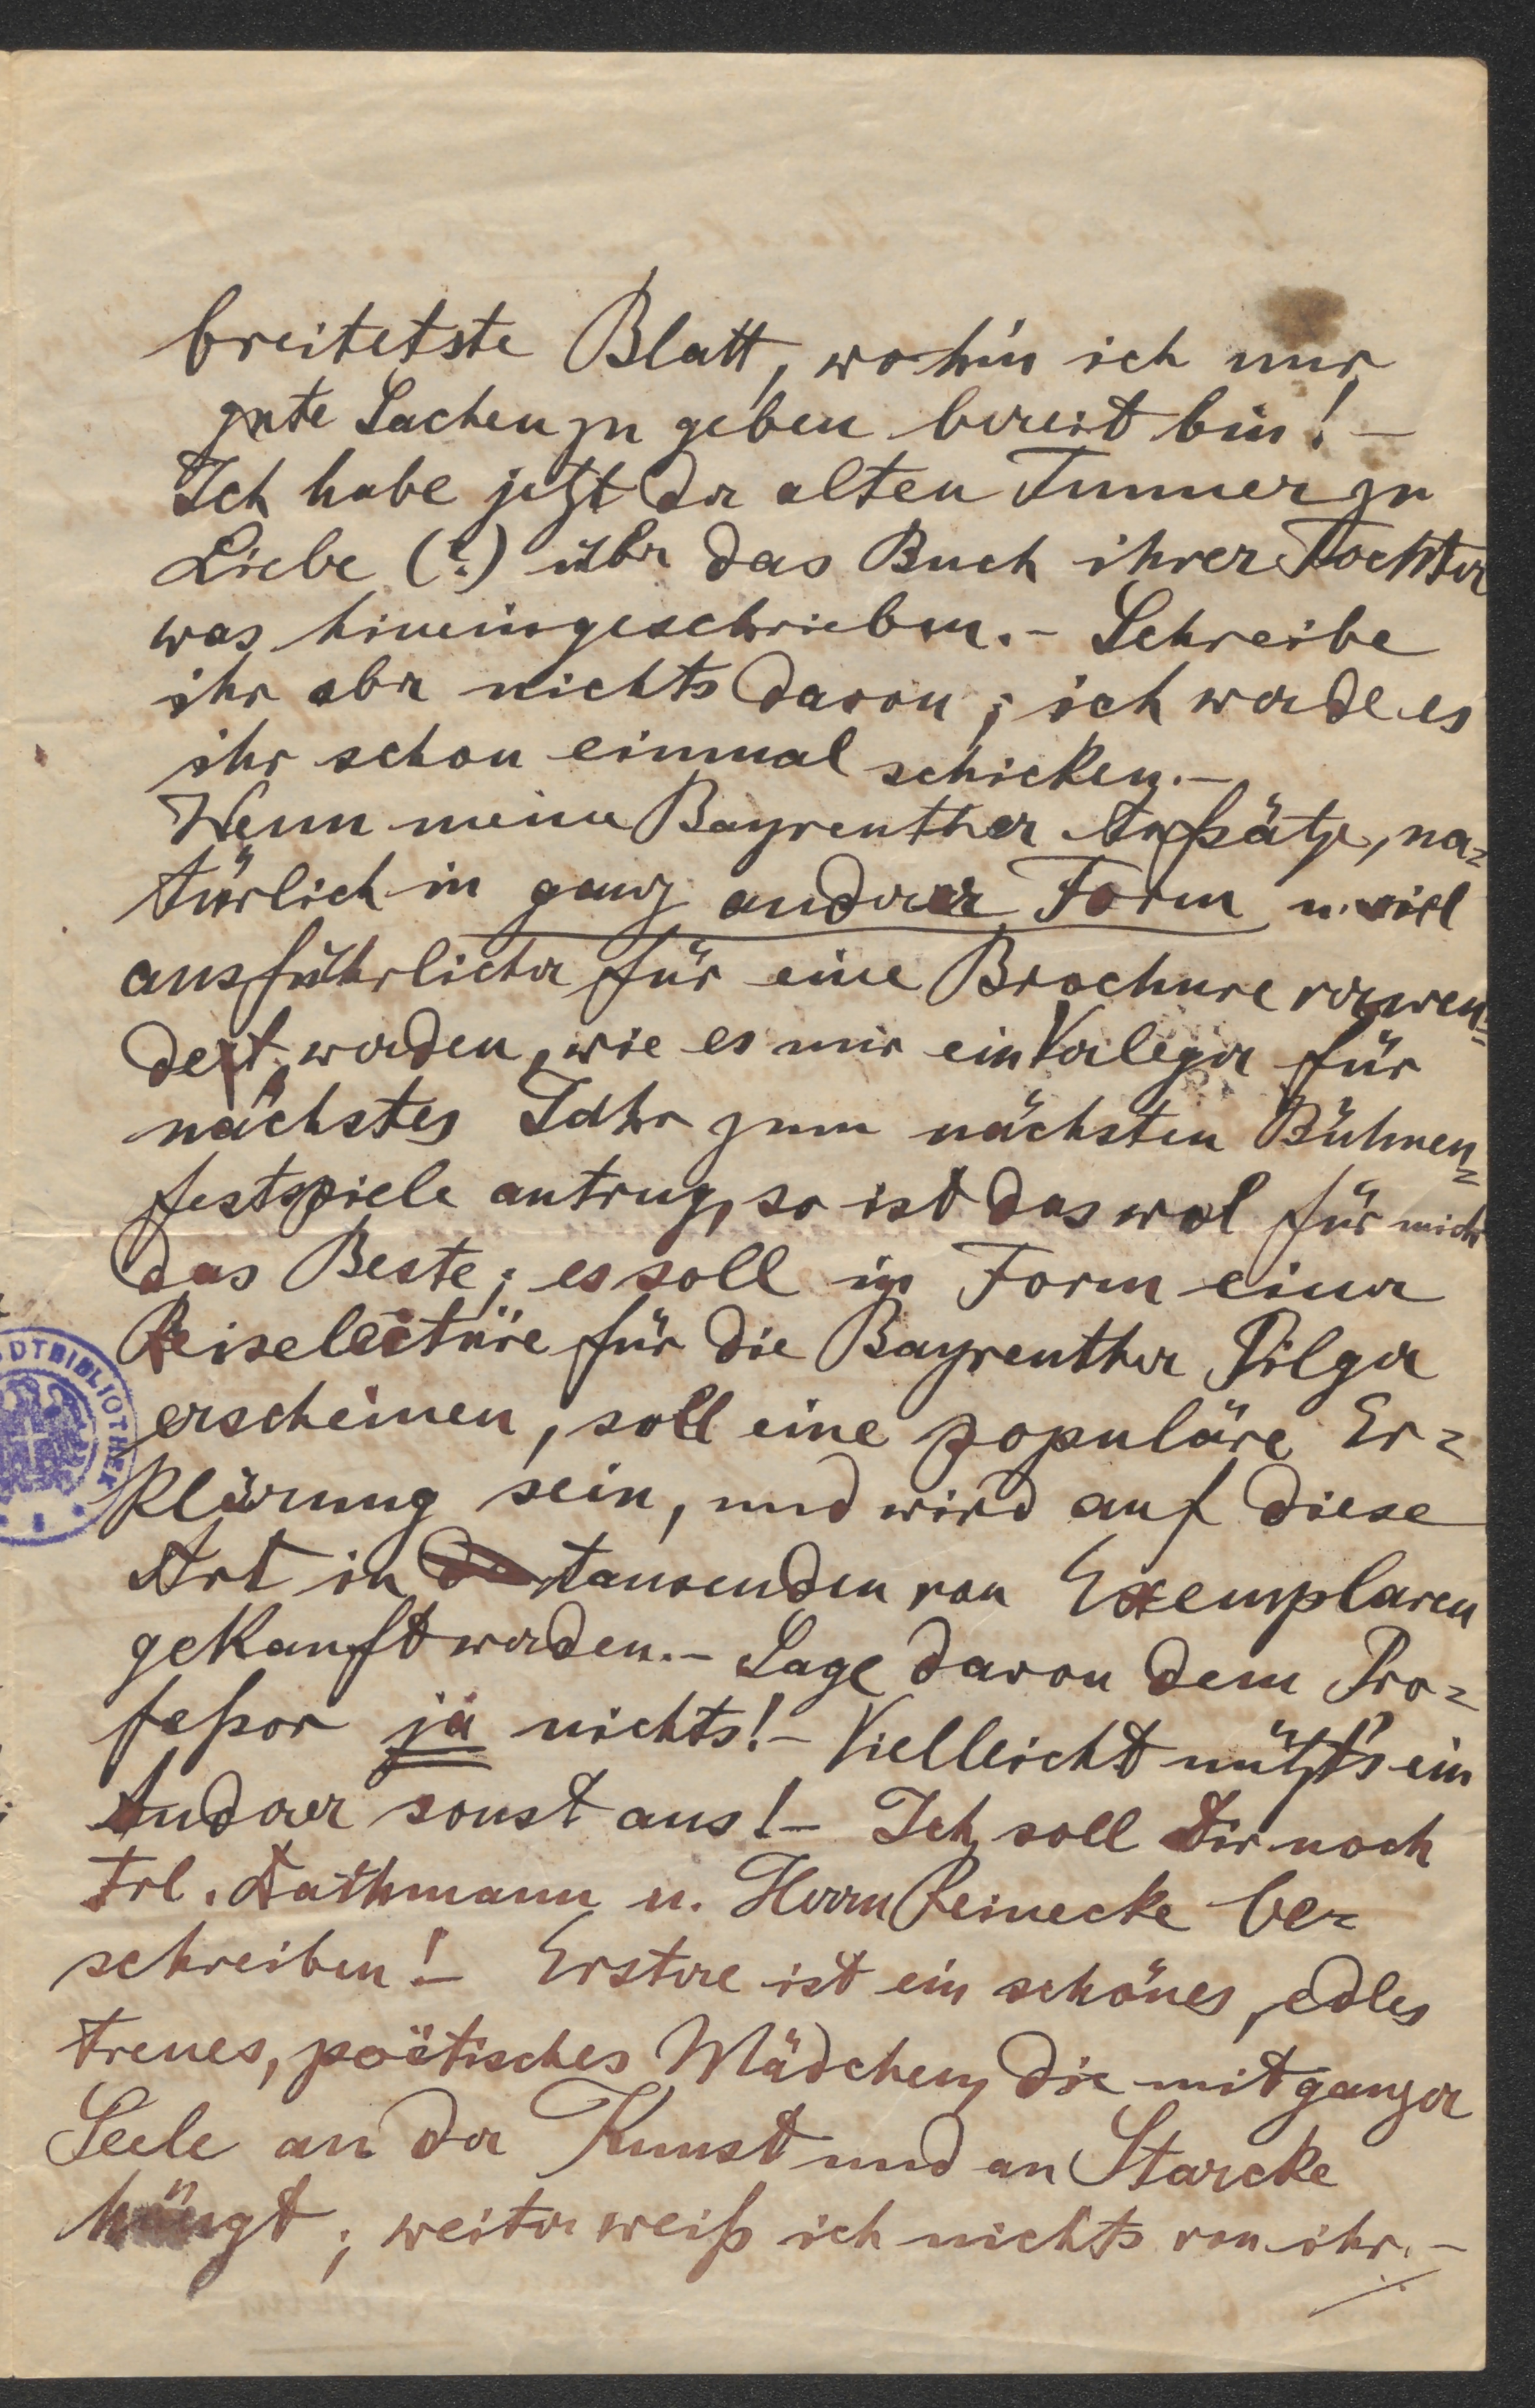 breitetste Blatt, wohin ich nur
gute Sachen zu geben bereit bin! –
Ich habe jetzt der alten Tunner zu
Liebe (?) über das Buch ihrer Tochter
was hineingeschrieben. – Schreibe
ihr aber nichts davon; ich werde es
ihr schon einmal schicken. –
Wenn meine Bayreuther Aufsätze, na=
türlich in ganz anderer Form u. viel
ausführlicher für eine Brochure verwen=
det werden, wie es mir ein Verleger für
nächstes Jahr zum nächsten Bühnen=
festspiele antrug, so ist das wol für mich
das Beste; es soll in Form einer
Reiselectüre für die Bayreuther Pilger
erscheinen, soll eine populäre Er=
klärung sein, und wird auf diese
Art in tausenden von Exemplaren
gekauft werden. – Sage davon dem Pro=
feßor ja nichts! – Vielleicht nützt's ein
Anderer sonst aus! – Ich soll Dir noch
Frl. Dathmann u. Herrn Reinecke be=
schreiben! – Erstere ist ein schönes, edles
treues, poëtisches Mädchen, die mit ganzer
Seele an der Kunst und an Starcke
hängt; weiter weiß ich nichts von ihr. –
DTBIBLIOTHEK